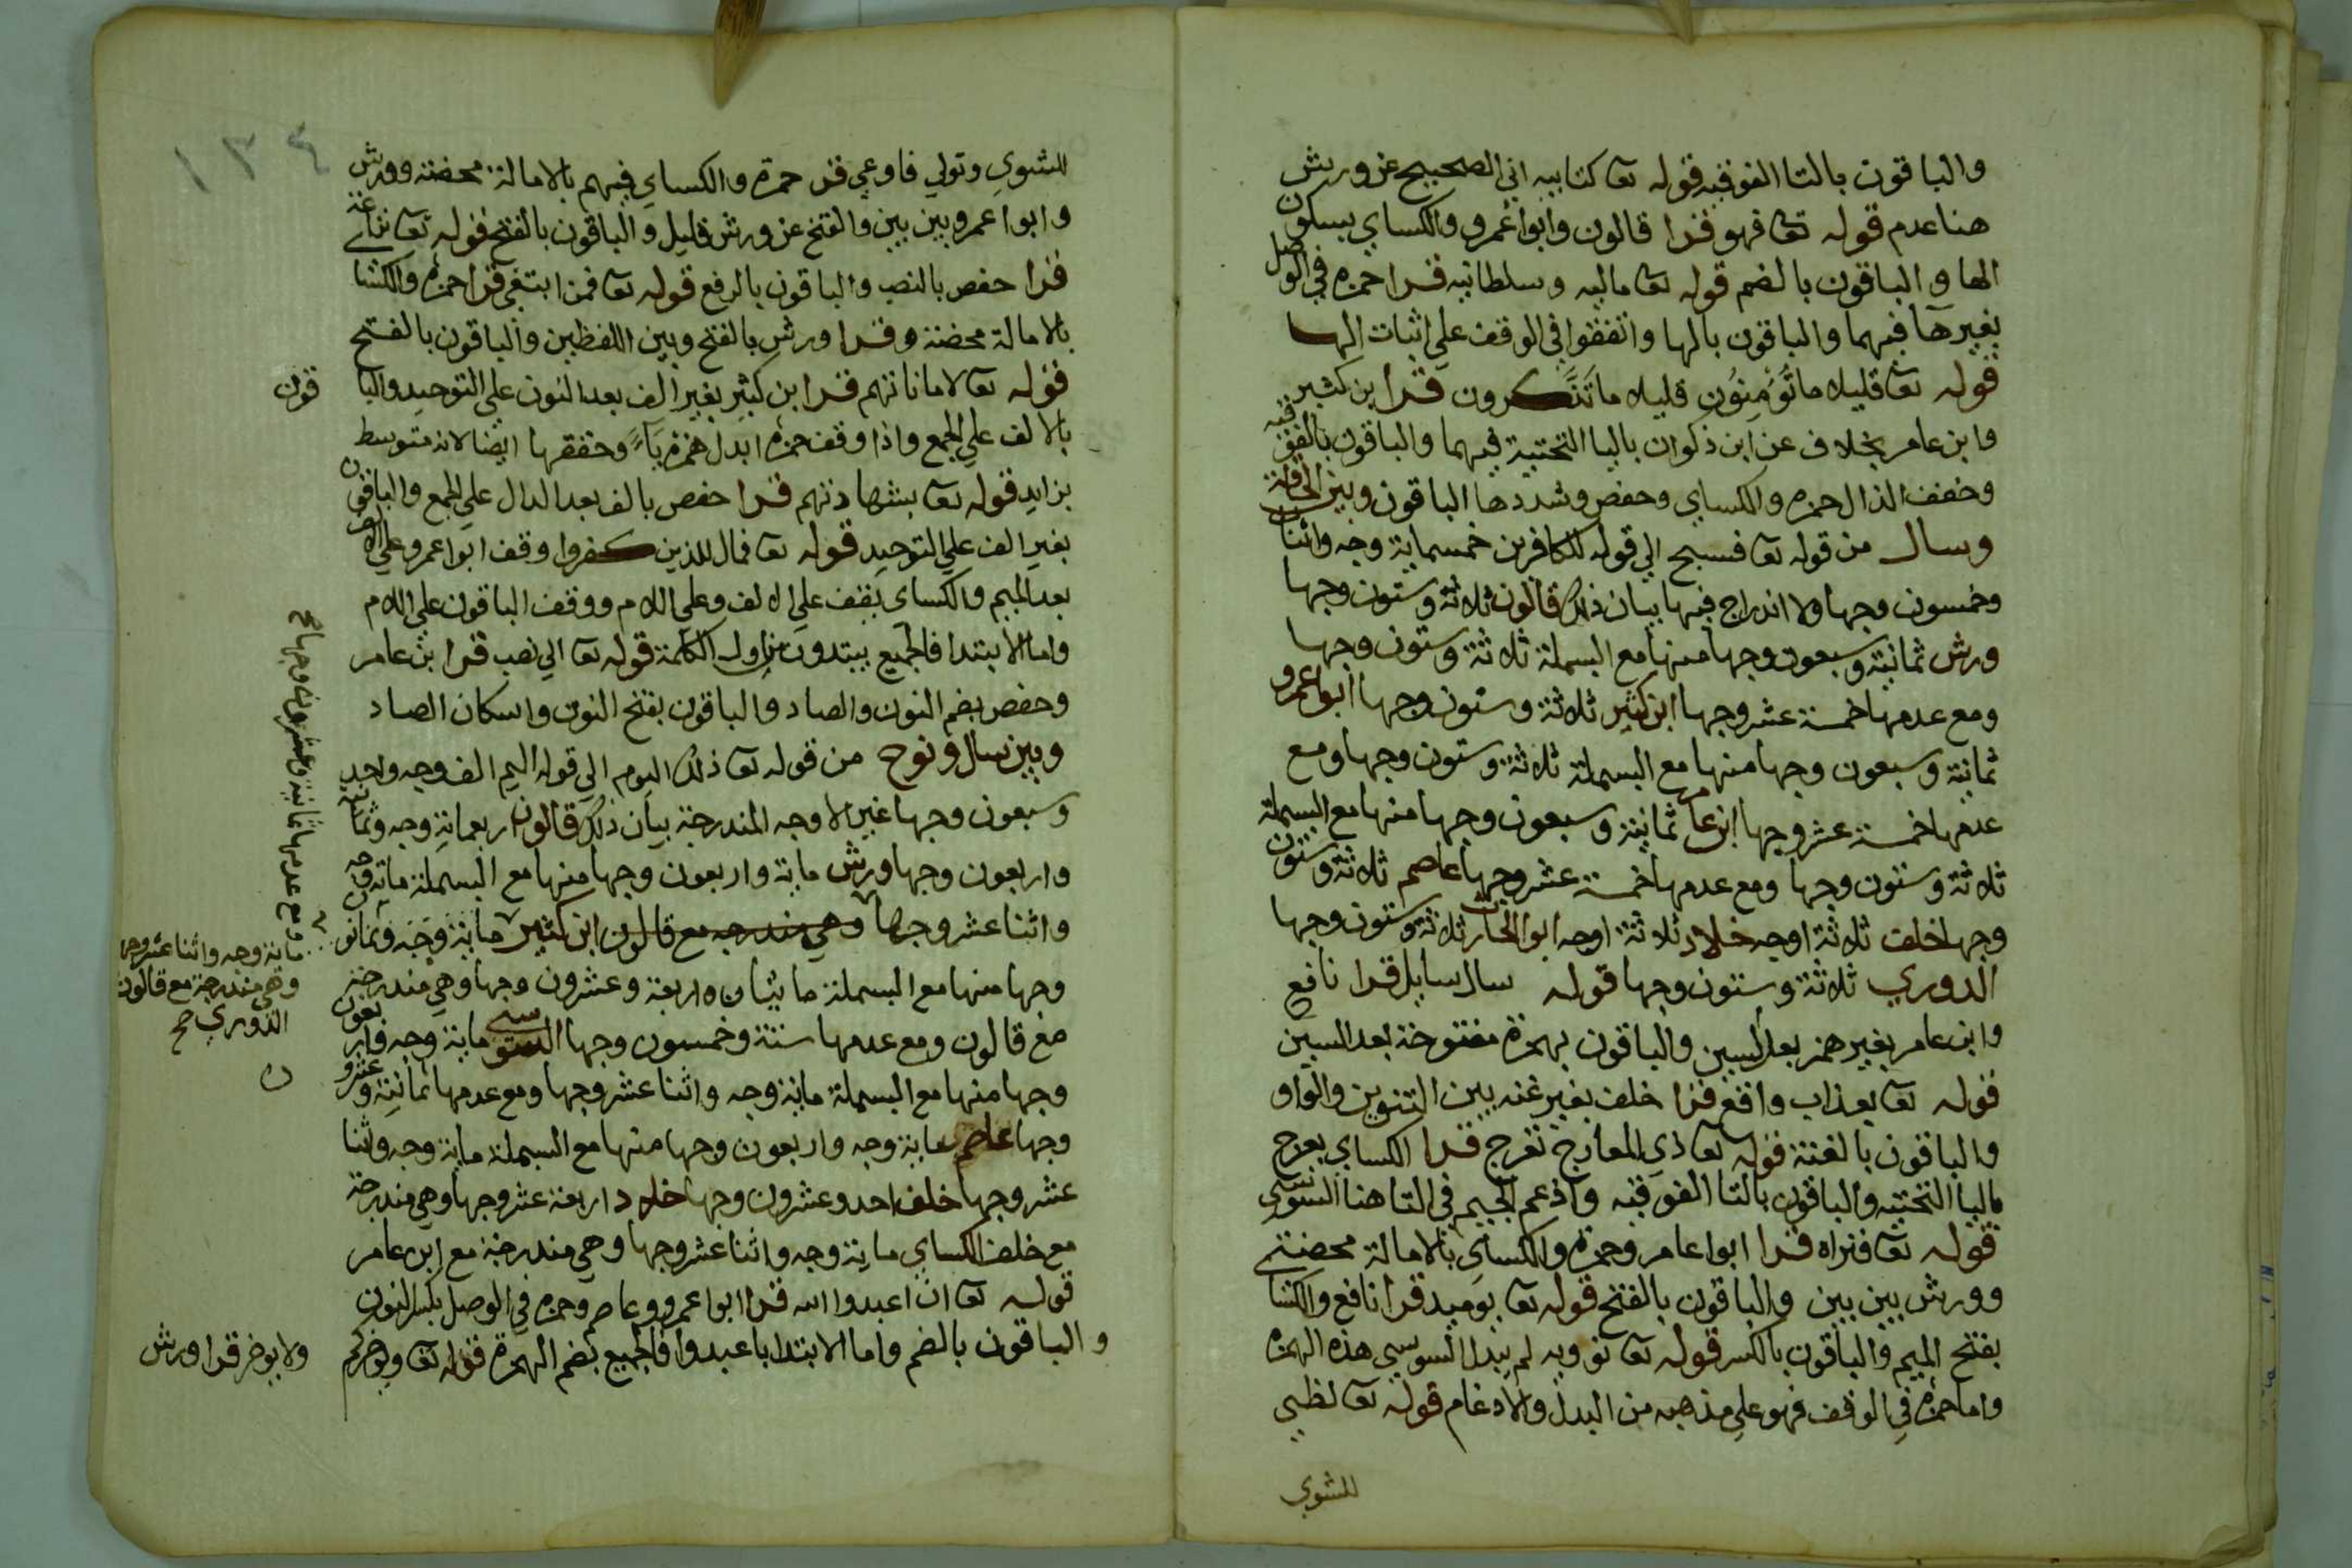 والباقون بالتا الفوقيه قوله تعا كتابيه اني الصحيح عن ورش
هنا عدم قوله تعا فهو قرا قالون وابوا عمرو والكساي بسكون
الها والباقون بالضم قوله تعا ماليه وسلطانيه قرا حمزه في الوصل
بغيرها فيهما والباقون بالها واتفقوا في الوقف علي اثبات الها
قوله تعا قليلا ما تُؤمِنُون قليلا ما تَذَّكرون قرا ابن كثير
وابن عامر بخلاف عن ابن ذكوان باليا التحتية فيهما والباقون بالفوقيه
وخفف الذال حمزه والكساي وحفص وشددها الباقون وبين الحاقة
وسال من قوله تعا فسبح الي قوله للكافرين خمسماية وجه واثنان
وخمسون وجها ولا اندراج فيها بيان ذلك قالون ثلاثة وستون وجها
ورش ثمانية وسبعون وجها منها مع البسملة ثلاثة وستون وجها
ومع عدمها خمسة عشر وجها ابن كثير ثلاثة وستون وجها ابوا عمرو
ثمانية وسبعون وجها منها مع البسملة ثلاثة وستون وجها ومع
عدمها خمسة عشر وجها ابن عامر ثمانية وسبعون وجها منها مع البسملة
ثلاثة وستون وجها ومع عدمها خمسة عشر وجها عاصم ثلاثة وستون
وجها خلف ثلاثة اوجه خلاد ثلاثة اوجه ابوا الحارث ثلاثة وستون وجها
الدوري ثلاثة وستون وجها قوله سال سايل قرا نافع
وابن عامر بغير همز بعد السين والباقون بهمزة مفتوحة بعد السين
قوله تعا بعذاب واقع قرا خلف بغير غنه بين التنوين والواو
والباقون بالغنة قوله تعا ذي المعارج تعرج قرا الكساي يعرج
باليا التحتيه والباقون بالتا الفوقيه وادغم الجيم في التا هنا السوسي
قوله تعا ونراه قرا ابوا عامر وحمزه والكساي بالامالة محضة
وورش بين بين والباقون بالفتح قوله تعا يوميذ قرا نافع والكسا
بفتح الميم والباقون بالكسر قوله تعا تؤويه لم يبدل السوسي هذه الهمزه
واما حمزه في الوقف فهو علي مذهبه من البدل والادغام قوله تعا لظي
للشوي
١٣٤
للشوي وتولي فاوعي قرا حمزة والكساي فيهم بالامالة محضة وورش
وابوا عمرو بين بين والفتح عن ورش قليل والباقون بالفتح قوله تعا نزاعة
قرا حفص بالنصب والباقون بالرفع قوله تعا فمن ابتغي قرا حمزه والكسا
بالامالة محضة وقرا ورش بالفتح وبين اللفظين والباقون بالفتح
قوله تعا لاماناتهم قرا ابن كثير بغير الف بعد النون علي التوحيد والبا
قون
بالالف علي الجمع واذا وقف حمزه ابدل همزه ياءً وحققها ايضا لانه متوسط
بزايد قوله تعا بشهادتهم قرا حفص بالف بعد الدال علي الجمع والباقون
بغير الف علي التوحيد قوله تعا فمال للذين كفروا وقف ابوا عمرو علي الالف
بعد الميم والكساي يقف علي الالف وعلي اللام ووقف الباقون علي اللام
واما الابتدا فالجميع يبتدون من اول الكلمة قوله تعا الي نصب قرا ابن عامر
وحفص بضم النون والصاد والباقون بفتح النون واسكان الصاد
وبين سال ونوح من قوله تعا ذلك اليوم الي قوله اليم الف وجه واحد
وسبعون وجها غير الاوجه المندرجة بيان ذلك قالون اربعماية وجه وثمانية
واربعون وجها ورش ماية واربعون وجها منها مع البسملة ماية وجه
واثنا عشر وجها وهي مندرجه مع قالون ابن كثير ماية وجه وثمانون
وجها منها مع البسملة مايتان واربعة وعشرون وجها وهي مندرجة
مع قالون ومع عدمها ستة وخمسون وجها السوسي ماية وجه واربعون
وجها منها مع البسملة ماية وجه واثنا عشر وجها ومع عدمها ثمانية وعشرو
وجها عاصم ماية وجه واربعون وجها منها مع البسملة ماية وجه واثنا
عشر وجها خلف احد وعشرون وجها خلاد اربعة عشر وجها وهي مندرجة
مع خلف الكساي ماية وجه واثنا عشر وجها وهي مندرجة مع ابن عامر
قوله تعا ان اعبدوا الله قرا ابوا عمرو وعاصم وحمزه في الوصل بكسر النون
والباقون بالضم واما الابتدا باعبدوا فالجميع بضم الهمزة قوله تعا ويؤخركم
ولا يوخر قرا ورش
ومع عدمها ثمانية وعشرون وجها صح
ماية وجه واثنا عشر وجها
وهي مندرجة مع قالون
الدوري صح
ن